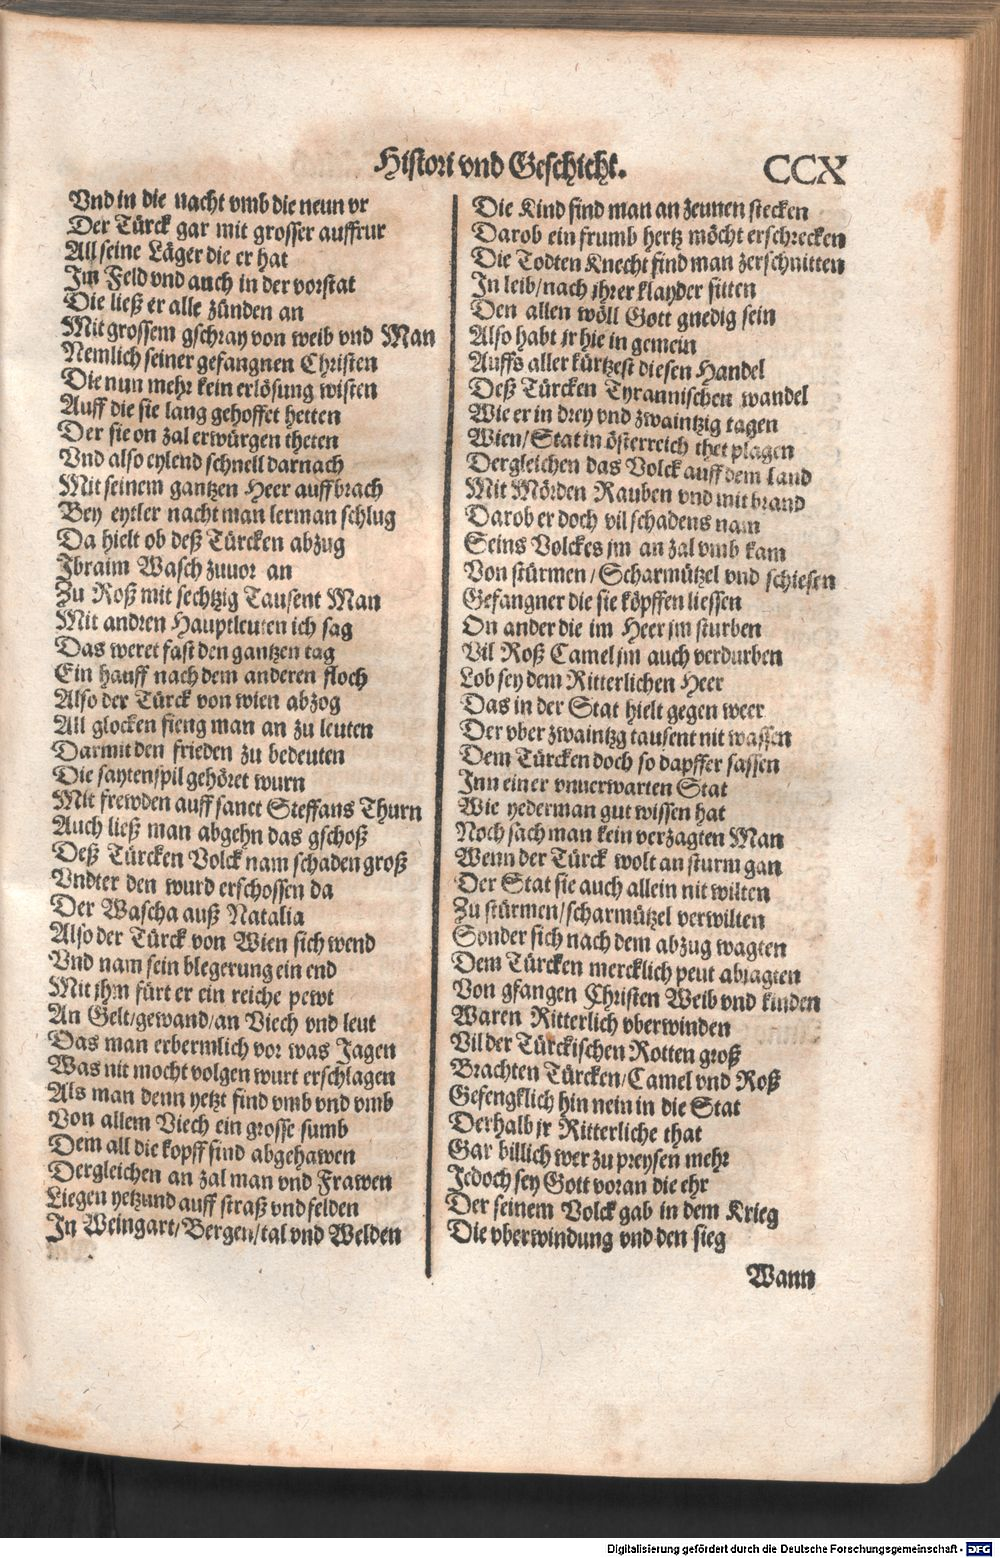 Histori vnd Geschicht.
CCX
Vnd in die nacht vmb die neun vr
Der Türck gar mit grosser auffrur
All seine Läger die er hat
Im Feld vnd auch in der vorstat
Die ließ er alle zünden an
Mit grossem gschray von weib vnd Man
Nemlich seiner gefangnen Christen
Die nun mehr kein erlösung wisten
Auff die sie lang gehoffet hetten
Der sie on zal erwürgen theten
Vnd also eylend schnell darnach
Mit seinem gantzen Heer auffbrach
Bey eytler nacht man lerman schlug
Da hielt ob deß Türcken abzug
Ibraim Wascha zuuor an
Zu Roß mit sechtzig Tausent Man
Mit andren Hauptleuten ich sag
Das weret fast den gantzen tag
Ein hauff nach dem anderen floch
Also der Türck von wien abzog
All glocken fieng man an zu leuten
Darmit den frieden zu bedeuten
Die saytenspil gehöret wurn
Mit frewden auff sanct Steffans Thurn
Auch ließ man abgehn das gschoß
Deß Türcken Volck nam schaden groß
Vndter den wurd erschossen da
Der Wascha auß Natalia
Also der Türck von Wien sich wend
Vnd nam sein blegerung ein end
Mit jhm fürt er ein reiche pewt
An Gelt/gewand/an Viech vnd leut
Das man erbermlich vor was Jagen
Was nit mocht volgen wurt erschlagen
Als man denn yetzt find vmb vnd vmb
Von allem Viech ein grosse sumb
Dem all die kopff sind abgehawen
Dergleichen an zal man vnd Frawen
Liegen yetzund auff straß vnd felden
In Weingart/Bergen/tal vnd Welden
Die Kind find man an zeunen stecken
Darob ein frumb hertz möcht erschrecken
Die Todten Knecht find man zerschnitten
In leib/nach jhrer klayder sitten
Den allen wöll Gott gnedig sein
Also habt jr hie in gemein
Auffs aller kürtzest diesen Handel
Deß Türcken Tyrannischen wandel
Wie er in drey vnd zwaintzig tagen
Wien/Stat in österreich thet plagen
Dergleichen das Volck auff dem land
Mit Mörden Rauben vnd mit brand
Darob er doch vil schadens nam
Seins Volckes jm an zal vmb kam
Von stürmen/Scharmützel vnd schiesen
Gefangner die sie köpffen liessen
On ander die im Heer jm sturben
Vil Roß Camel jm auch verdurben
Lob sey dem Ritterlichen Heer
Das in der Stat hielt gegen weer
Der vber zwaintzg tausent nit wassen
Dem Türcken doch so dapffer sassen
Inn einer vnuerwarten Stat
Wie yederman gut wissen hat
Noch sach man kein verzagten Man
Wenn der Türck wolt an sturm gan
Der Stat sie auch allein nit wilten
Zu stürmen/scharmützel verwilten
Sonder sich nach dem abzug wagten
Dem Türcken mercklich peut abjagten
Von gfangen Christen Weib vnd kinden
Waren Ritterlich vberwinden
Vil der Türckischen Rotten groß
Brachten Türcken/Camel vnd Roß
Gefengklich hin nein in die Stat
Derhalb jr Ritterliche that
Gar billich wer zu preysen mehr
Jedoch sey Gott voran die ehr
Der seinem Volck gab in dem Krieg
Die vberwindung vnd den sieg
Wann
Digitalisierung gefördert durch die Deutsche Forschungsgemeinschaft - DFG